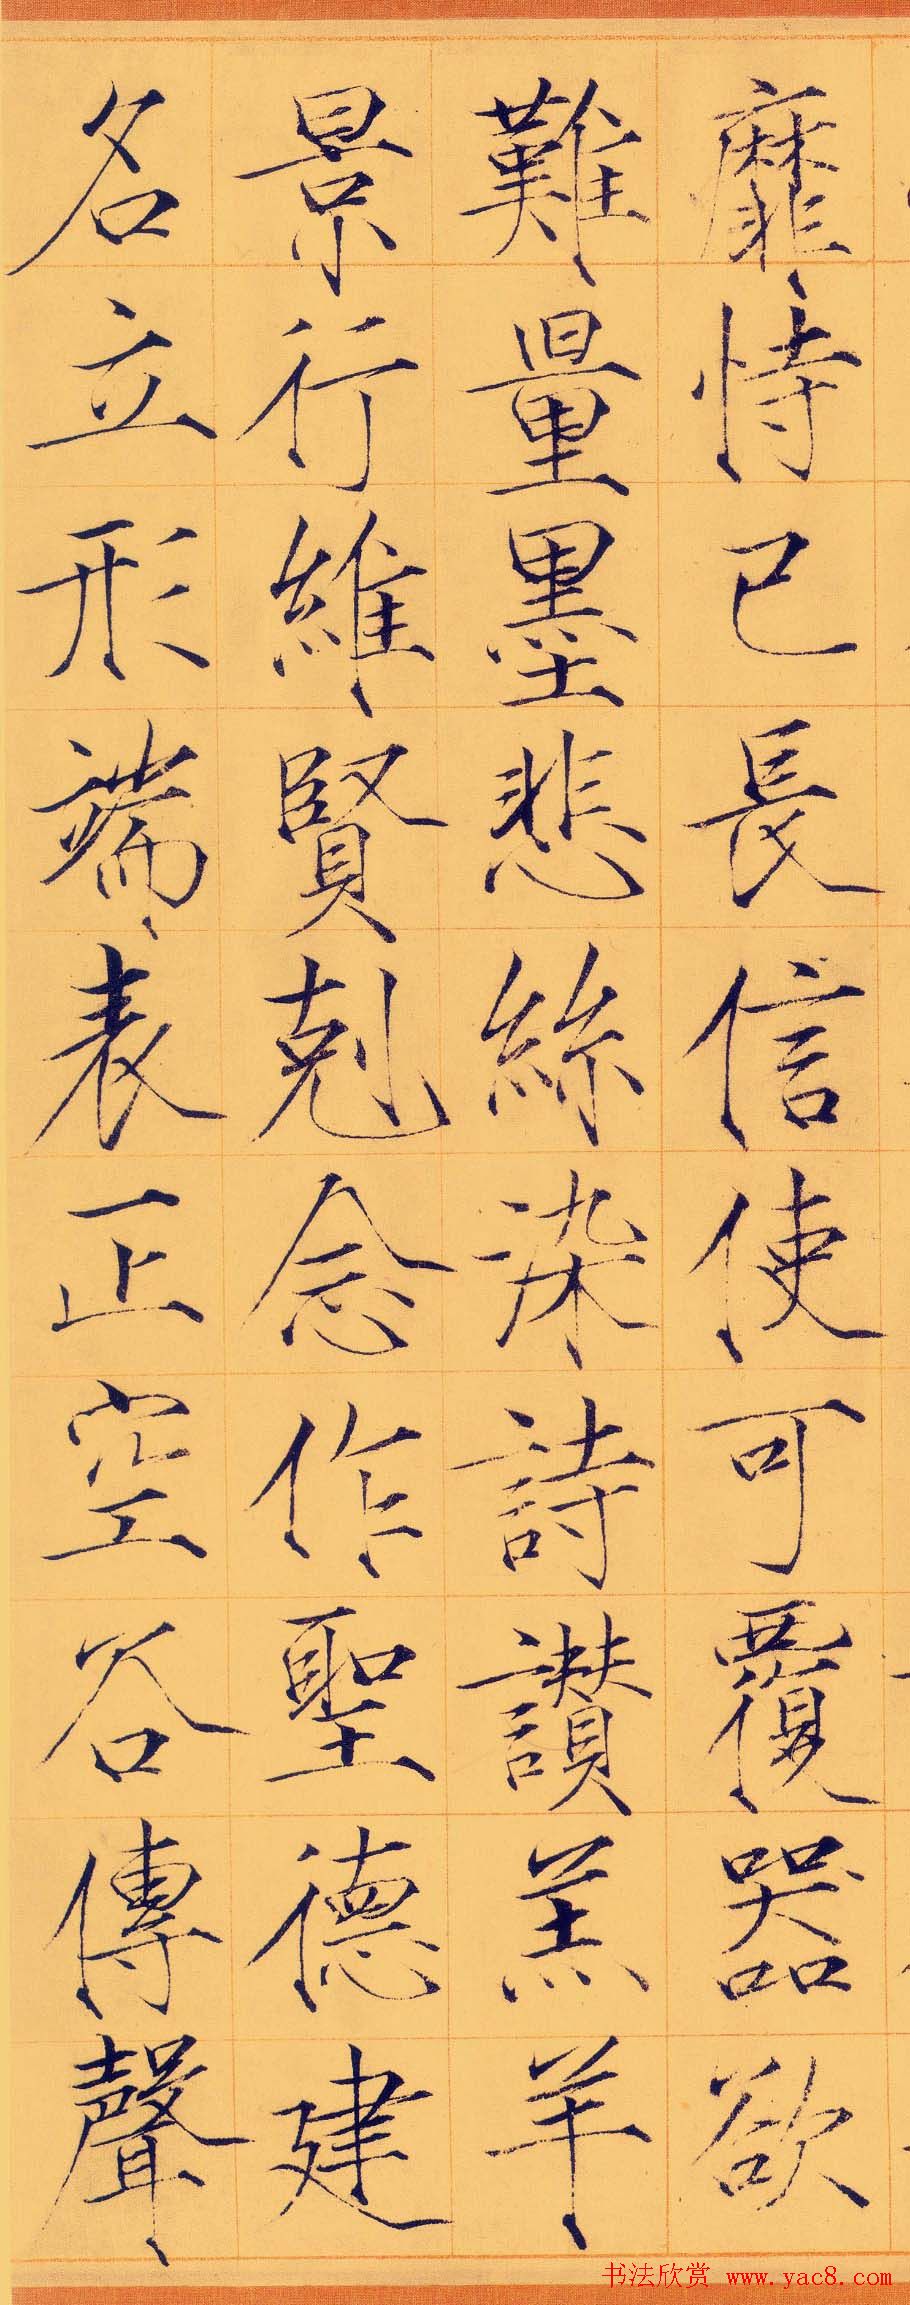 靡恃已長信使可覆器欲
難量墨悲絲染詩讃羔羊
景行維賢剋念作聖德建
名立形端表正空谷傳聲
书法欣赏 www.yac8.com